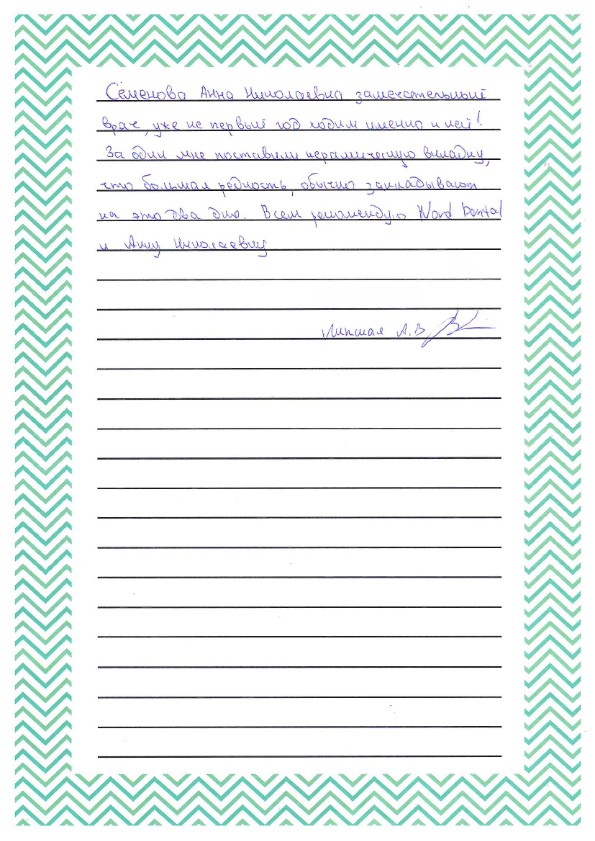 Семенова Анна Николаевна замечательный
врач, уже не первый год ходим именно к ней!
За один мне поставили керамическую вкладку,
что большая редность, обычно закладывают
на это два дня. Всем рекомендую Nord Dental
и Анну Николаевну
А.В